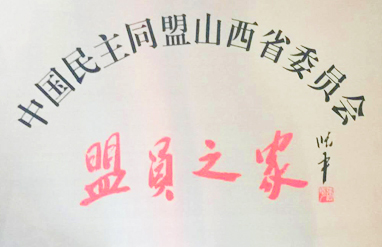 中国民主同盟山西省委员会
盟員之家